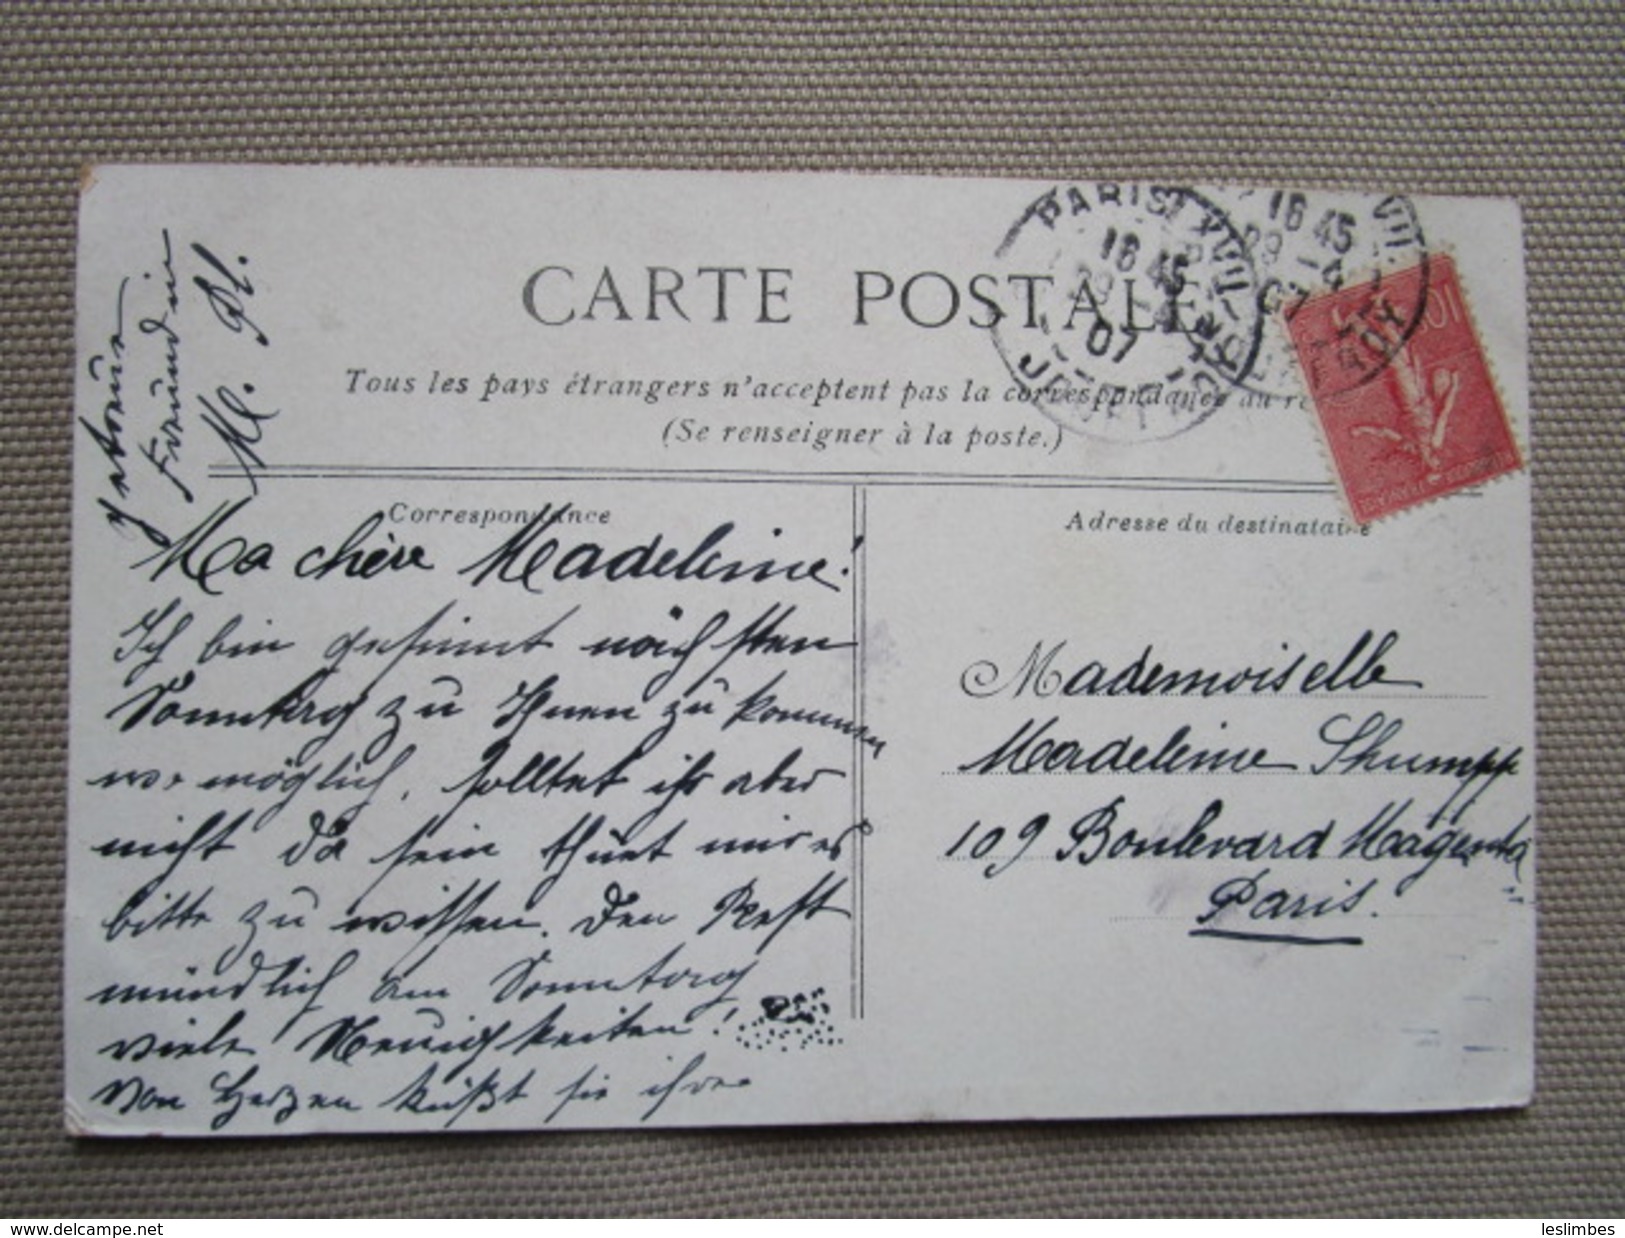 CARTE POSTALE
Tous les pays étrangers n'acceptent pas la correspondance au
(Se renseigner à la poste.)
PARIS XVII
16 45
07
16 45
07
Correspondance
Ma chère Madeleine!
Ich bin gesinnt nächsten
Sonntag zu Ihnen zu kommen
wo möglich, solltet ihr aber
nicht da sein thuet mir es
bitte zu wissen. Den Rest
mündlich am Sonntag
viele Neuigkeiten!
von Herzen küßt sie ihre
getreue
Freundin
M. St.
Adresse du destinataire
Mademoiselle
Madeleine Shumpp
109 Boulevard Magenta
Paris.
www.delcampe.net
leslimbes